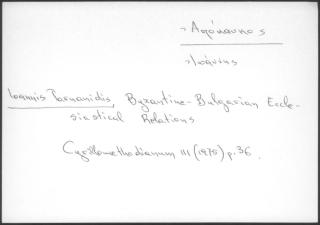 Ἀπόκαυκος
Ἰωάννης
Ioannis Tarnanidis, Byzantine-Bulgarian Eccle-
siastical Relations
Cyrillomethodianum III (1975) p. 36.